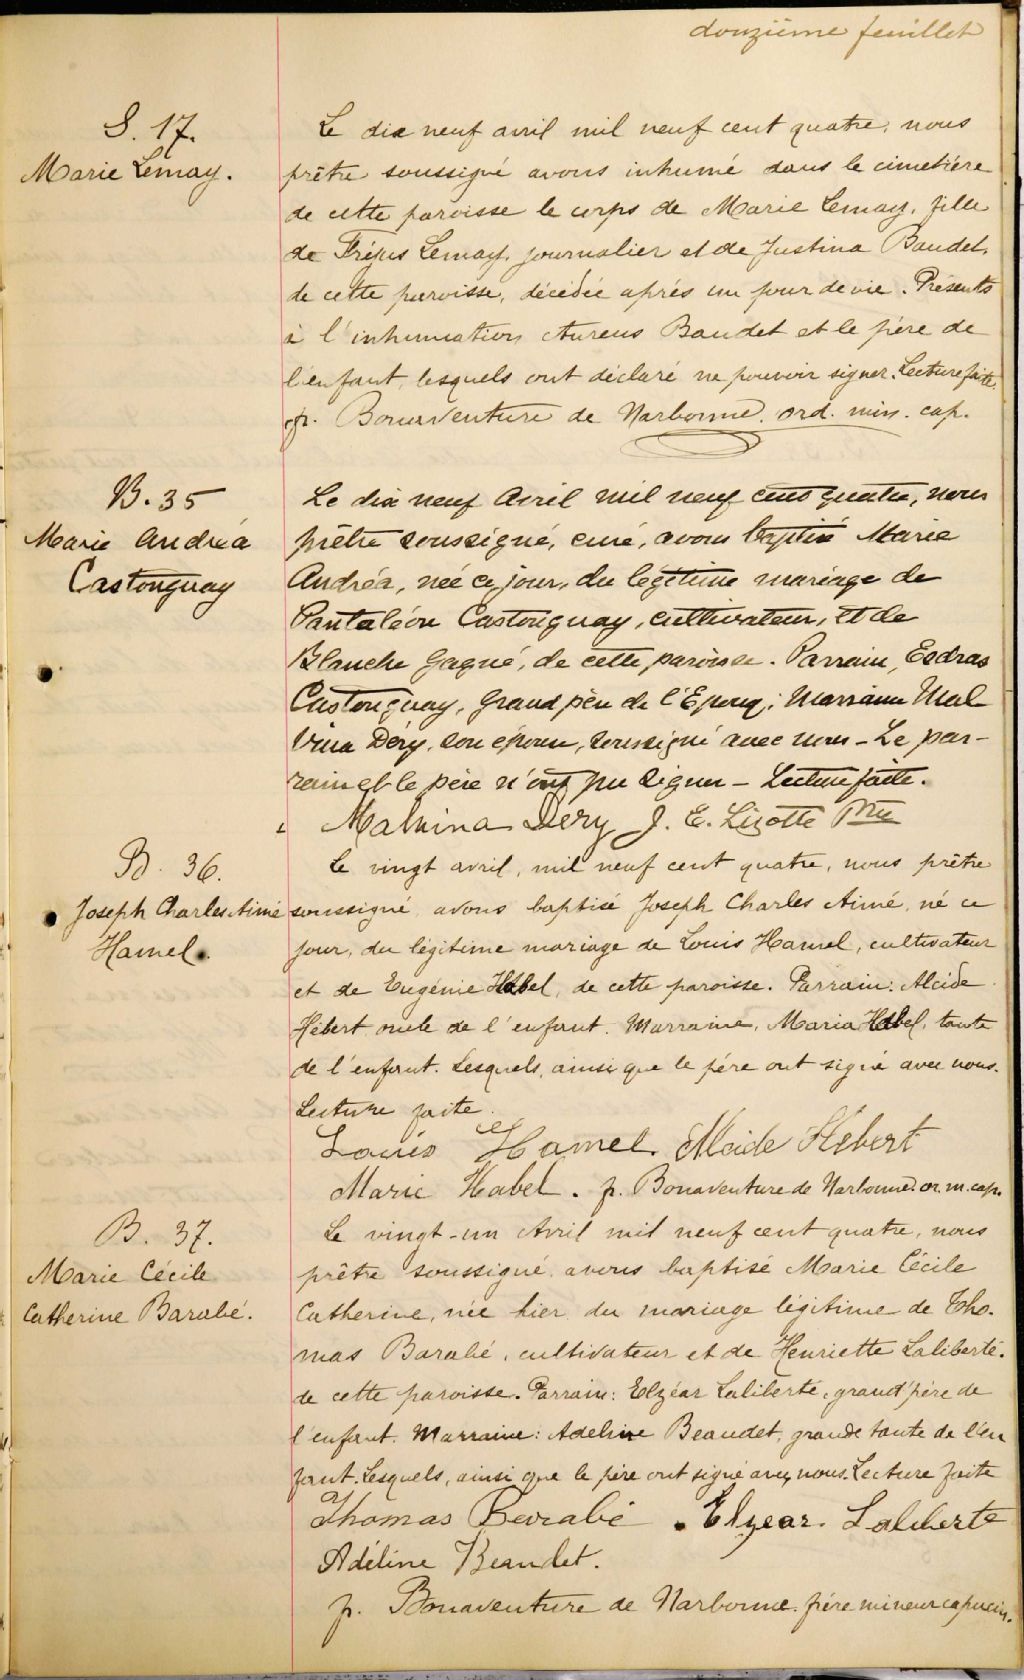 douzième feuillet
S. 17.
Marie Lemay.
Le dix neuf avril mil neuf cent quatre, nous
prêtre soussigné avons inhumé dans le cimetière
de cette paroisse le corps de Marie Lemay, fille
de Fréjus Lemay, journalier et de Justina Baudet,
de cette paroisse, décédée après un jour de vie. Présents
à l'inhumation Aureus Baudet et le père de
l'enfant, lesquels ont déclaré ne pouvoir signer. Lecture faite.
fr. Bonaventure de Narbonne. ord. min. cap.
B. 35
Marie Andréa
Castonguay
Le dix neuf Avril mil neuf cent quatre, nous
prêtre soussigné, curé, avons baptisé Marie
Andréa, née ce jour, du légitime mariage de
Pantaléon Castonguay, cultivateur, et de
Blanche Gagné, de cette paroisse. Parrain, Esdras
Castonguay, Grand père de l'Epoux; Marraine Mal
vina Déry, son épouse, soussigné avec nous - Le par-
rain et le père n'ont pu signer - Lecture faite.
Malvina Dery J. E. Lizotte Ptre
B. 36.
Joseph Charles Aimé
Hamel.
Le vingt avril, mil neuf cent quatre, nous prêtre
soussigné, avons baptisé Joseph Charles Aimé, né ce
jour, du légitime mariage de Louis Hamel, cultivateur
et de Eugénie Habel, de cette paroisse. Parrain: Alcide
Hébert oncle de l'enfant. Marraine, Maria Habel, tante
de l'enfant. Lesquels, ainsi que le père ont signé avec nous.
Lecture faite.
Louis Hamel. Alcide Hebert
Marie Habel. f. Bonaventure de Narbonne. or. m. cap.
B. 37.
Marie Cécile
Catherine Barabé.
Le vingt-un Avril mil neuf cent quatre, nous
prêtre soussigné avons baptisé Marie Cécile
Catherine, née hier du mariage légitime de Tho-
mas Barabé, cultivateur et de Henriette Laliberté.
de cette paroisse. Parrain: Elzéar Laliberté, grand'père de
l'enfant. Marraine: Adeline Beaudet, grande tante de l'en
fant. Lesquels, ainsi que le père ont signé avec nous. Lecture faite
Thomas Barabé. Elzear. Laliberte
Adéline Beaudet.
f. Bonaventure de Narbonne. frère mineur capucin.